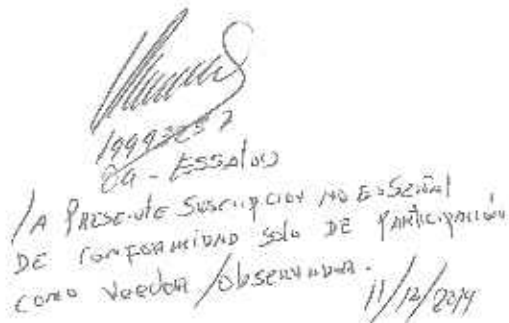 OA - ESSALUD
LA PRESENTE SUSCRIPCION NO ES SEÑAL
DE CONFORMIDAD SOLO DE PARTICIPACIÓN
COMO VEEDOR/OBSERVADOR.
11/12/2019